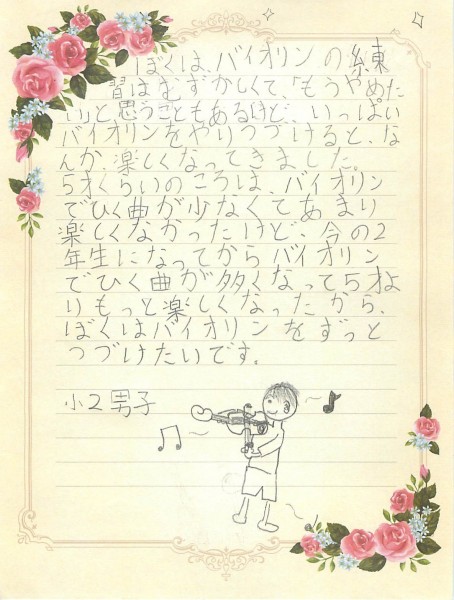 ぼくは、バイオリンの練
習はむずかしくて、「もうやめた
い」と思うこともあるけど、いっぱい
バイオリンをやりつづけると、な
んか、楽しくなってきました。
5才くらいのころは、バイオリン
でひく曲が少なくてあまり
楽しくなかったけど、今の2
年生になってからバイオリン
でひく曲が多くなって5才よ
りもっと楽しくなったから、
ぼくはバイオリンをずっと
つづけたいです。
小2男子